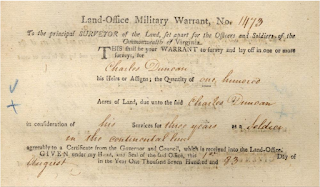 Land-Office Military Warrant, No. 1473
To the principal SURVEYOR of the Land, set apart for the Officers and Soldiers of the
Commonwealth of Virginia.
THIS shall be your WARRANT to survey and lay off in one or more
surveys, for Charles Duncan
his Heirs or Assigns, the Quantity of one hundred
Acres of Land, due unto the said Charles Duncan
in consideration of his Services for three years as a Soldier
in the continental line
agreeably to a Certificate from the Governor and Council, which is received into the Land-Office.
GIVEN under my Hand, and Seal of the said Office, this 1st Day of
August in the Year One Thousand Seven Hundred and 83